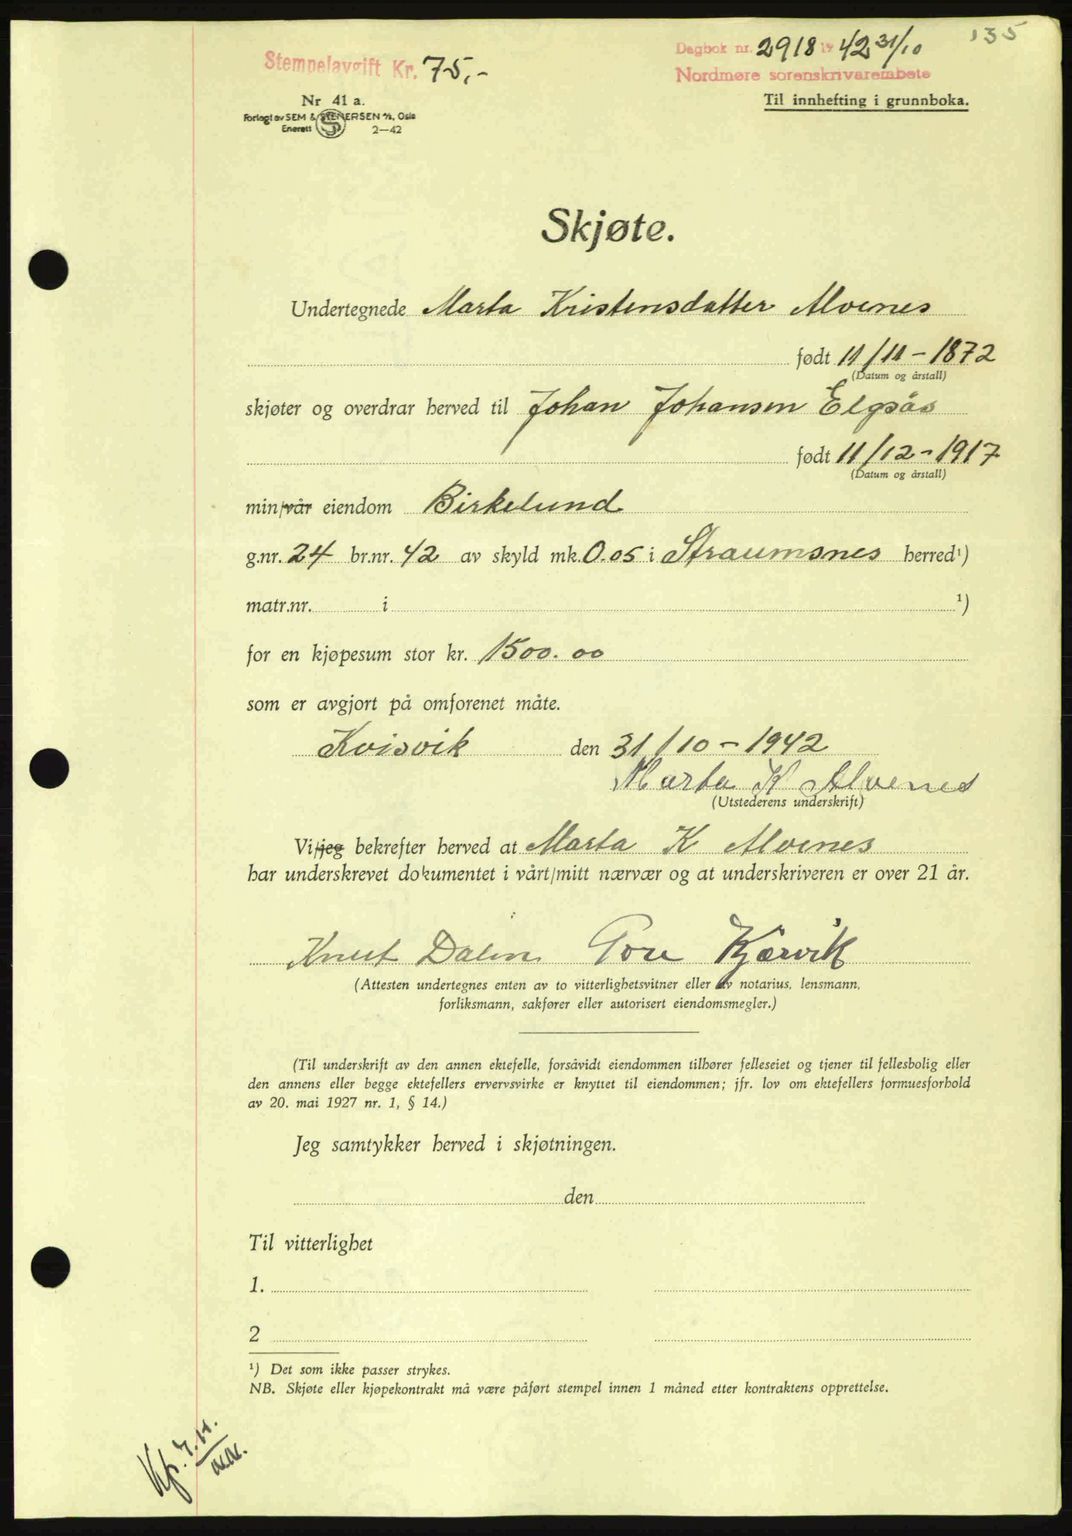 135
Stempelavgift Kr. 75,-
Dagbok nr. 2918 19 42 31/10
Nordmøre sorenskriverembete
Nr 41 a.
Til innhefting i grunnboka.
Forlagt av SEM & STENERSEN A/S, Oslo
Enerett 2—42
Skjøte.
Undertegnede Marta Kristensdatter Alvenes
født 11/11 - 1872
(Datum og årstall)
skjøter og overdrar herved til Johan Johansen Elgsås
født 11/12 - 1917
(Datum og årstall)
min/vår eiendom Birkelund
g.nr. 24 br.nr. 42 av skyld mk. 0.05 i Straumsnes herred¹)
matr.nr. i ¹)
for en kjøpesum stor kr. 1500.00
som er avgjort på omforenet måte.
Kvisvik den 31/10 - 1942
Marta K Alvenes
(Utstederens underskrift)
Vi/jeg bekrefter herved at Marta K Alvenes
har underskrevet dokumentet i vårt/mitt nærvær og at underskriveren er over 21 år.
Knut Dalen Tore Kjærvik
(Attesten undertegnes enten av to vitterlighetsvitner eller av notarius, lensmann,
forliksmann, sakfører eller autorisert eiendomsmegler.)
(Til underskrift av den annen ektefelle, forsåvidt eiendommen tilhører felleseiet og tjener til fellesbolig eller
den annens eller begge ektefellers ervervsvirke er knyttet til eiendommen; jfr. lov om ektefellers formuesforhold
av 20. mai 1927 nr. 1, § 14.)
Jeg samtykker herved i skjøtningen.
den
Til vitterlighet
1.
2
¹) Det som ikke passer strykes.
NB. Skjøte eller kjøpekontrakt må være påført stempel innen 1 måned etter kontraktens opprettelse.